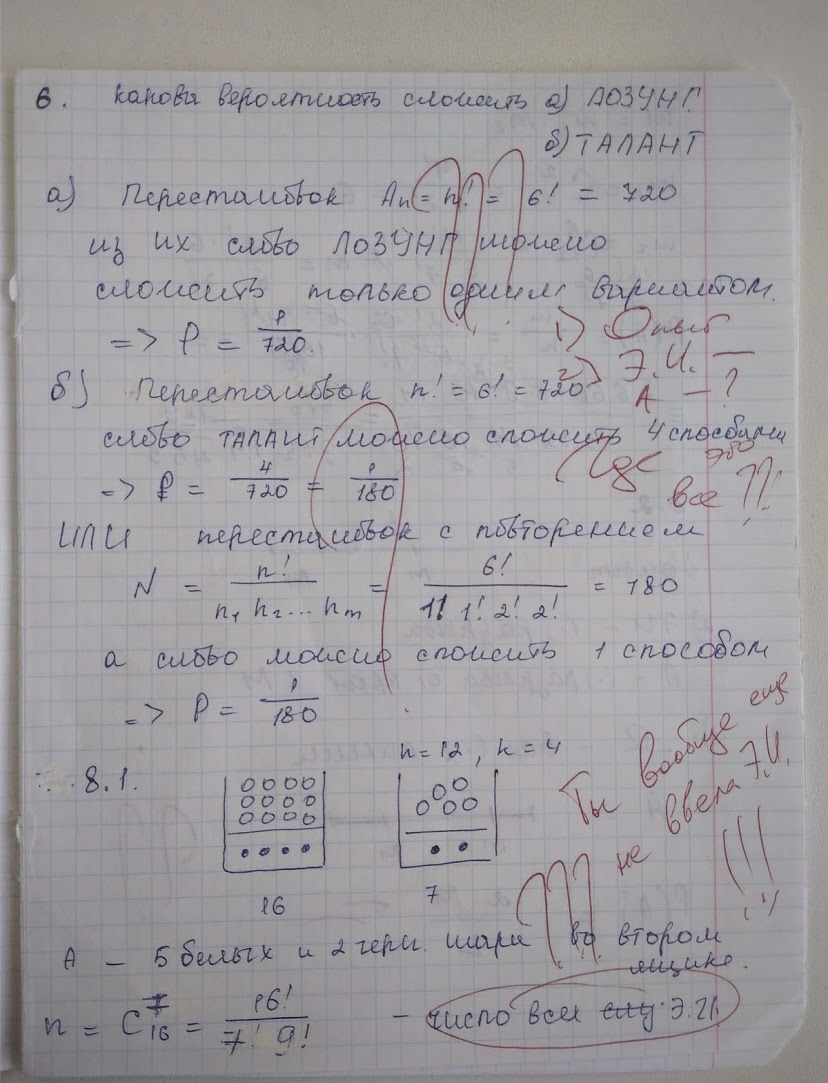 6. Каковы вероятность сложить а) ЛОЗУНГ
б) ТАЛАНТ
а) Перестановок Aₙ = n! = 6! = 720
из их слово ЛОЗУНГ можно
сложить только одним вариантом.
=> P = 1/720.
1) Опыт
2) Э.И. —
А — ?
б) Перестановок n! = 6! = 720
слово ТАЛАНТ можно сложить 4 способами
=> P = 4/720 = 1/180
Где это
все ??!
ИЛИ перестановок с повторением
N = n!/(n₁ n₂ ... nₘ) = 6!/(1! 1! 2! 2!) = 180
а слово можно сложить 1 способом
=> P = 1/180
Ты вообще еще
не ввела Э.И.
!!!
8.1.
n = 12, k = 4
16
7
А — 5 белых и 2 черн. шара во втором
ящике.
n = C₁₆⁷ = 16!/(7! 9!) — число всех Э.И.